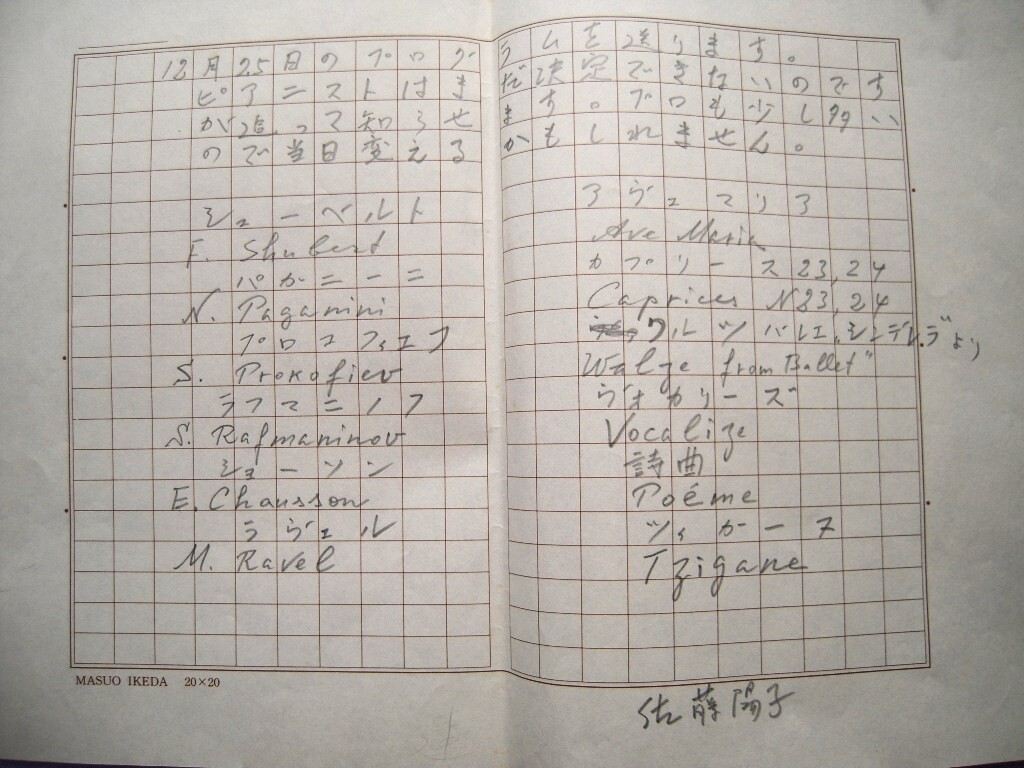 12月25日のプログラムを送ります。
ピアニストはまだ決定できないのです
が追って知らせます。プロも少し多い
ので当日変えるかもしれません。
シューベルト アヴェマリア
F. Shubert Ave Maria
パガニーニ カプリース23,24
N. Paganini Caprices N23,24
プロコフィエフ ワルツ バレエ„シンデレラ"より
S. Prokofiev Walze from Ballet"
ラフマニノフ ヴォカリーズ
S. Rafmaninov Vocalize
ショーソン 詩曲
E. Chausson Poéme
ラヴェル ツィガーヌ
M. Ravel Tzigane
MASUO IKEDA 20×20
佐藤陽子